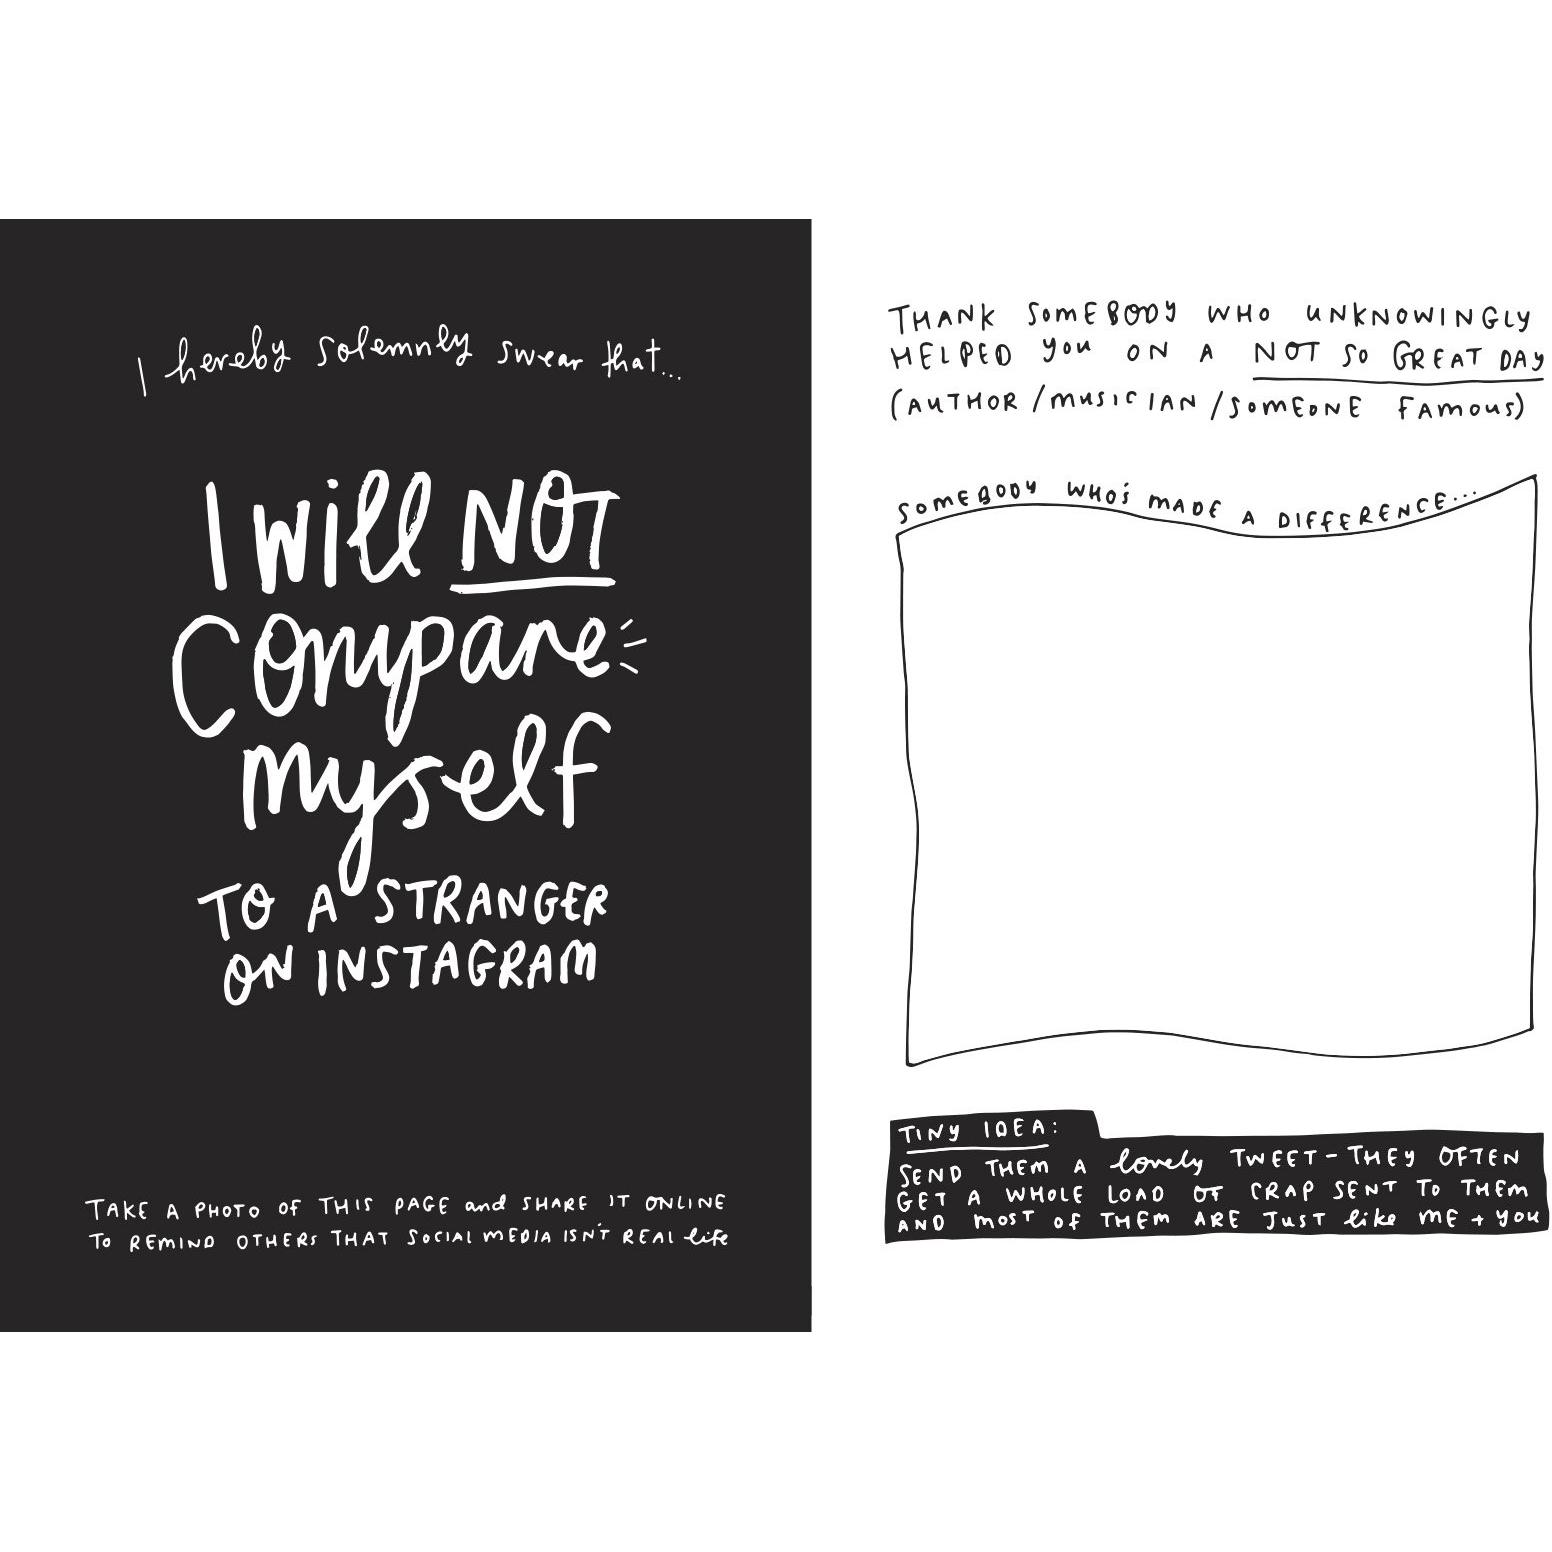 I hereby solemnly swear that...
I will NOT
Compare
myself
TO A STRANGER
ON INSTAGRAM
TAKE A PHOTO OF THIS PAGE and SHARE IT ONLINE
TO REMIND OTHERS THAT SOCIAL MEDIA ISN'T REAL life
THANK SOMEBODY WHO UNKNOWINGLY
HELPED YOU ON A NOT SO GREAT DAY
(AUTHOR/MUSICIAN/SOMEONE FAMOUS)
SOMEBODY WHO'S MADE A DIFFERENCE...
TINY IDEA:
SEND THEM A lovely TWEET - THEY OFTEN
GET A WHOLE LOAD OF CRAP SENT TO THEM
AND MOST OF THEM ARE JUST like ME + YOU